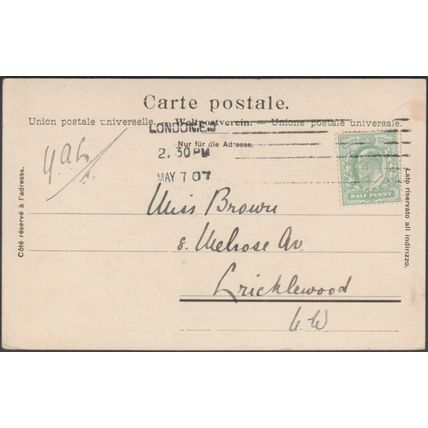 Carte postale.
Union postale universelle. — Weltpostverein. — Unione postale universale.
LONDON.N.W
Nur für die Adresse.
2.30PM
MAY 7 07
HALF PENNY
Côté réservé à l'adresse.
Lato riservato all indirizzo.
Miss Brown
8. Melrose Av.
Cricklewood
N.W